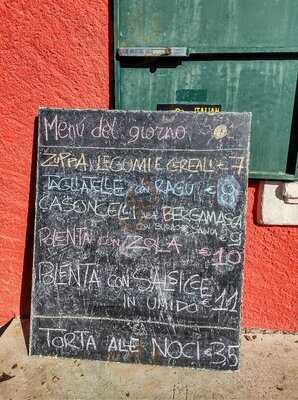 ITALIAN
Menù del giorno
ZUPPA LEGUMI E CEREALI € 7
TAGLIATELLE CON RAGÙ € 8
CASONCELLI ALLA BERGAMASCA
CON BURRO E SALVIA € 9
POLENTA CON ZOLA € 10
POLENTA CON SALSICCE
IN UMIDO € 11
TORTA ALLE NOCI € 35